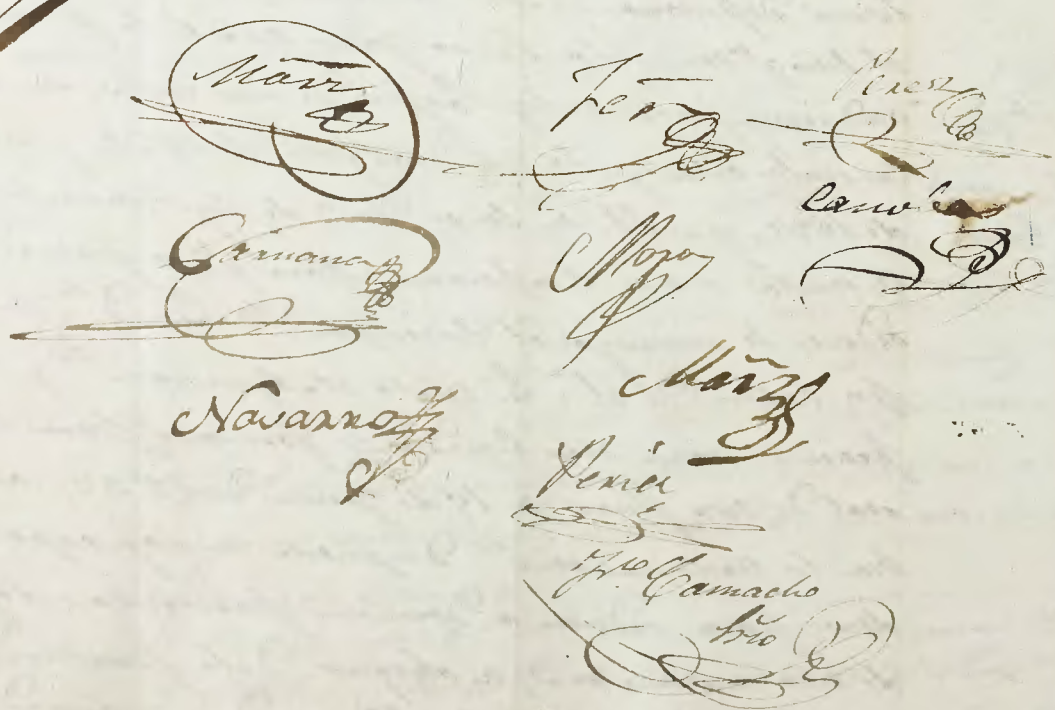 Márz Fer̃z Perez
Carmona Moro Cano
Navarro Mar̃z
Perier
Fco Camacho
Srio